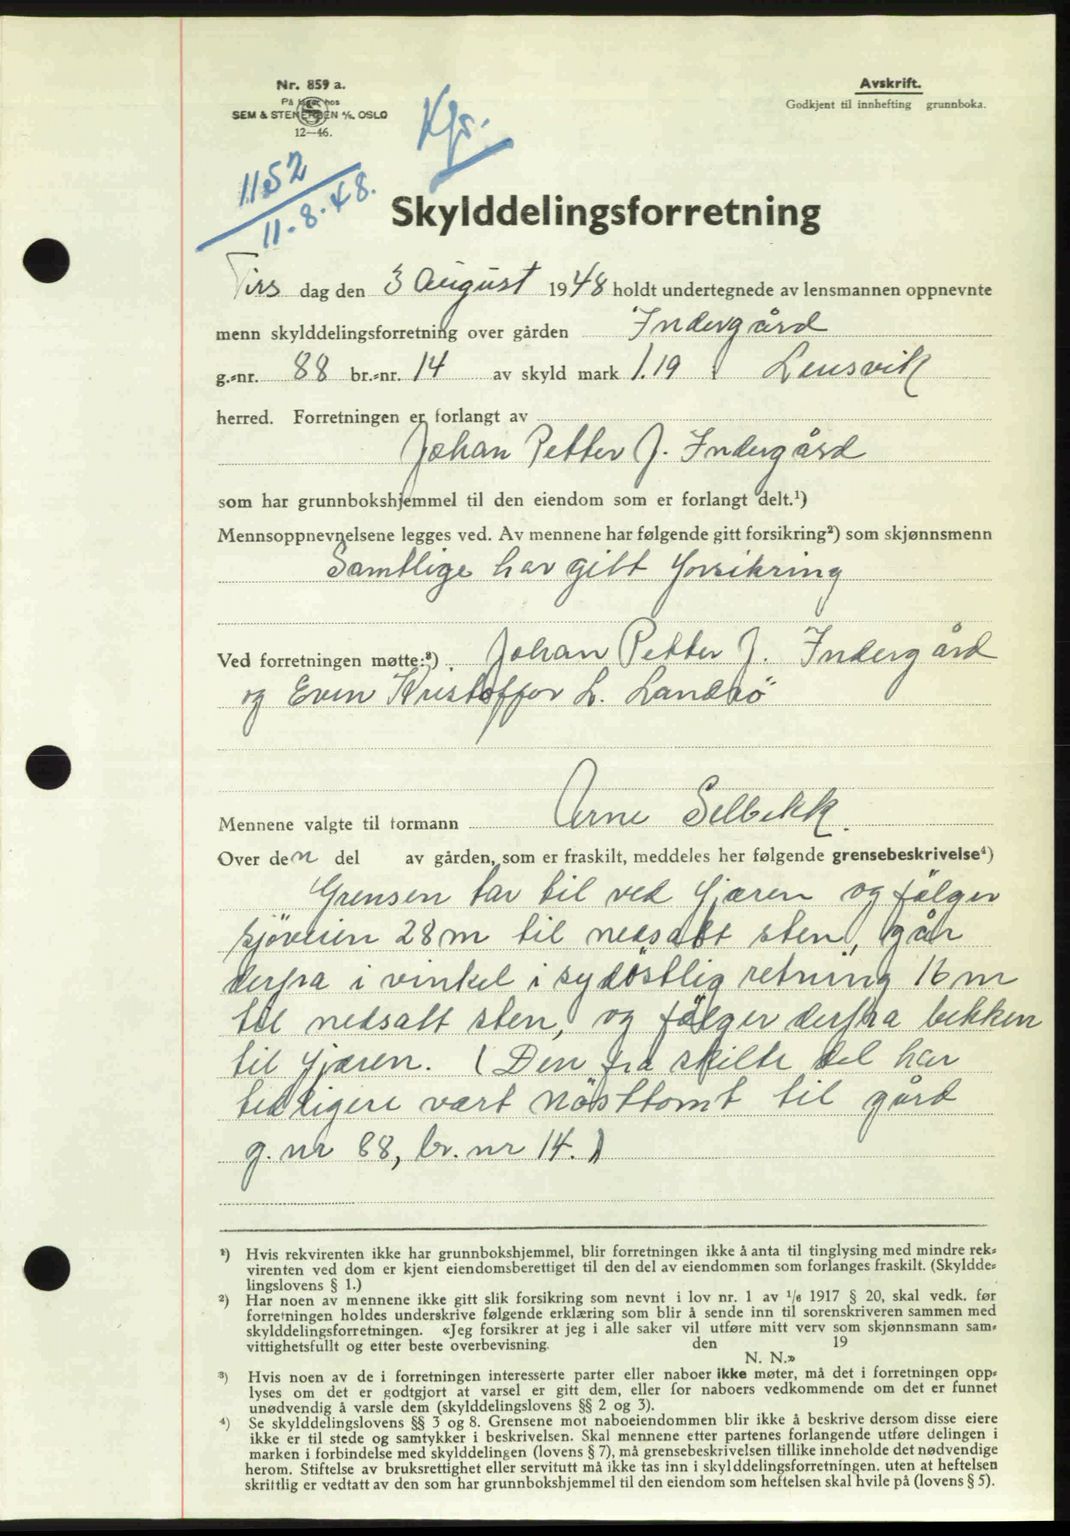 Nr. 859 a.
På lager hos
SEM & STENERSEN A/S, OSLO
12—46.
Avskrift.
Godkjent til innhefting grunnboka.
Kfr.
1152
11-8-48.
Skylddelingsforretning
Tirs dag den 3 August 1948 holdt undertegnede av lensmannen oppnevnte
menn skylddelingsforretning over gården Indergård
g.-nr. 88 br.-nr. 14 av skyld mark 1.19 i Lensvik
herred. Forretningen er forlangt av
Johan Petter J. Indergård
som har grunnbokshjemmel til den eiendom som er forlangt delt.¹)
Mennsoppnevnelsene legges ved. Av mennene har følgende gitt forsikring²) som skjønnsmenn
Samtlige har gitt forsikring
Ved forretningen møtte:³) Johan Petter J. Indergård
og Even Kristoffer L. Landrö
Mennene valgte til formann Arne Selbekk.
Over den del av gården, som er fraskilt, meddeles her følgende grensebeskrivelse⁴)
Grensen tar til ved fjæren og fölger
sjöveien 28 m til nedsatt sten, går
derfra i vinkel i sydöstlig retning 16 m
til nedsatt sten, og fölger derfra bekken
til fjæren. (Den fra skilte del har
tidligere vært nösttomt til gård
g. nr 88, br. nr 14.)
¹) Hvis rekvirenten ikke har grunnbokshjemmel, blir forretningen ikke å anta til tinglysing med mindre rek-
virenten ved dom er kjent eiendomsberettiget til den del av eiendommen som forlanges fraskilt. (Skyldde-
lingslovens § 1.)
²) Har noen av mennene ikke gitt slik forsikring som nevnt i lov nr. 1 av ¹/₆ 1917 § 20, skal vedk. før
forretningen holdes underskrive følgende erklæring som blir å sende inn til sorenskriveren sammen med
skylddelingsforretningen. «Jeg forsikrer at jeg i alle saker vil utføre mitt verv som skjønnsmann sam-
vittighetsfullt og etter beste overbevisning. den 19
N. N.»
³) Hvis noen av de i forretningen interesserte parter eller naboer ikke møter, må det i forretningen opp-
lyses om det er godtgjort at varsel er gitt dem, eller for naboers vedkommende om det er funnet
unødvendig å varsle dem (skylddelingslovens §§ 2 og 3).
⁴) Se skylddelingslovens §§ 3 og 8. Grensene mot naboeiendommen blir ikke å beskrive dersom disse eiere
ikke er til stede og samtykker i beskrivelsen. Skal mennene etter partenes forlangende utføre delingen i
marken i forbindelse med skylddelingen (lovens § 7), må grensebeskrivelsen tillike inneholde det nødvendige
herom. Stiftelse av bruksrettighet eller servitutt må ikke tas inn i skylddelingsforretningen. uten at heftelsen
skriftlig er vedtatt av den som har grunnbokshjemmel til den eiendom som heftelsen skal hvile på (lovens § 5).